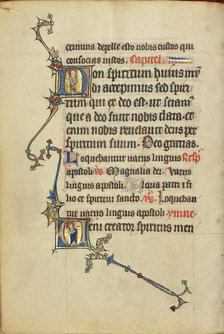 crimina depelle esto nobis custos qui
consocias iustos. Capitel
Non spiritum huius mun
di accepimus sed spiri
tum qui ex deo est ut sciam
que a deo sunt nobis data. et
nobis reuelauit deus per
spiritum suum. Deo gratias.
Loquebantur uariis linguis Resp
apostoli Magnalia dei. Variis
linguis apostoli Gloria patri et fi
lio et spiritui sancto. Loquebant
tur uariis linguis apostoli. ymne.
Veni creator spiritus men